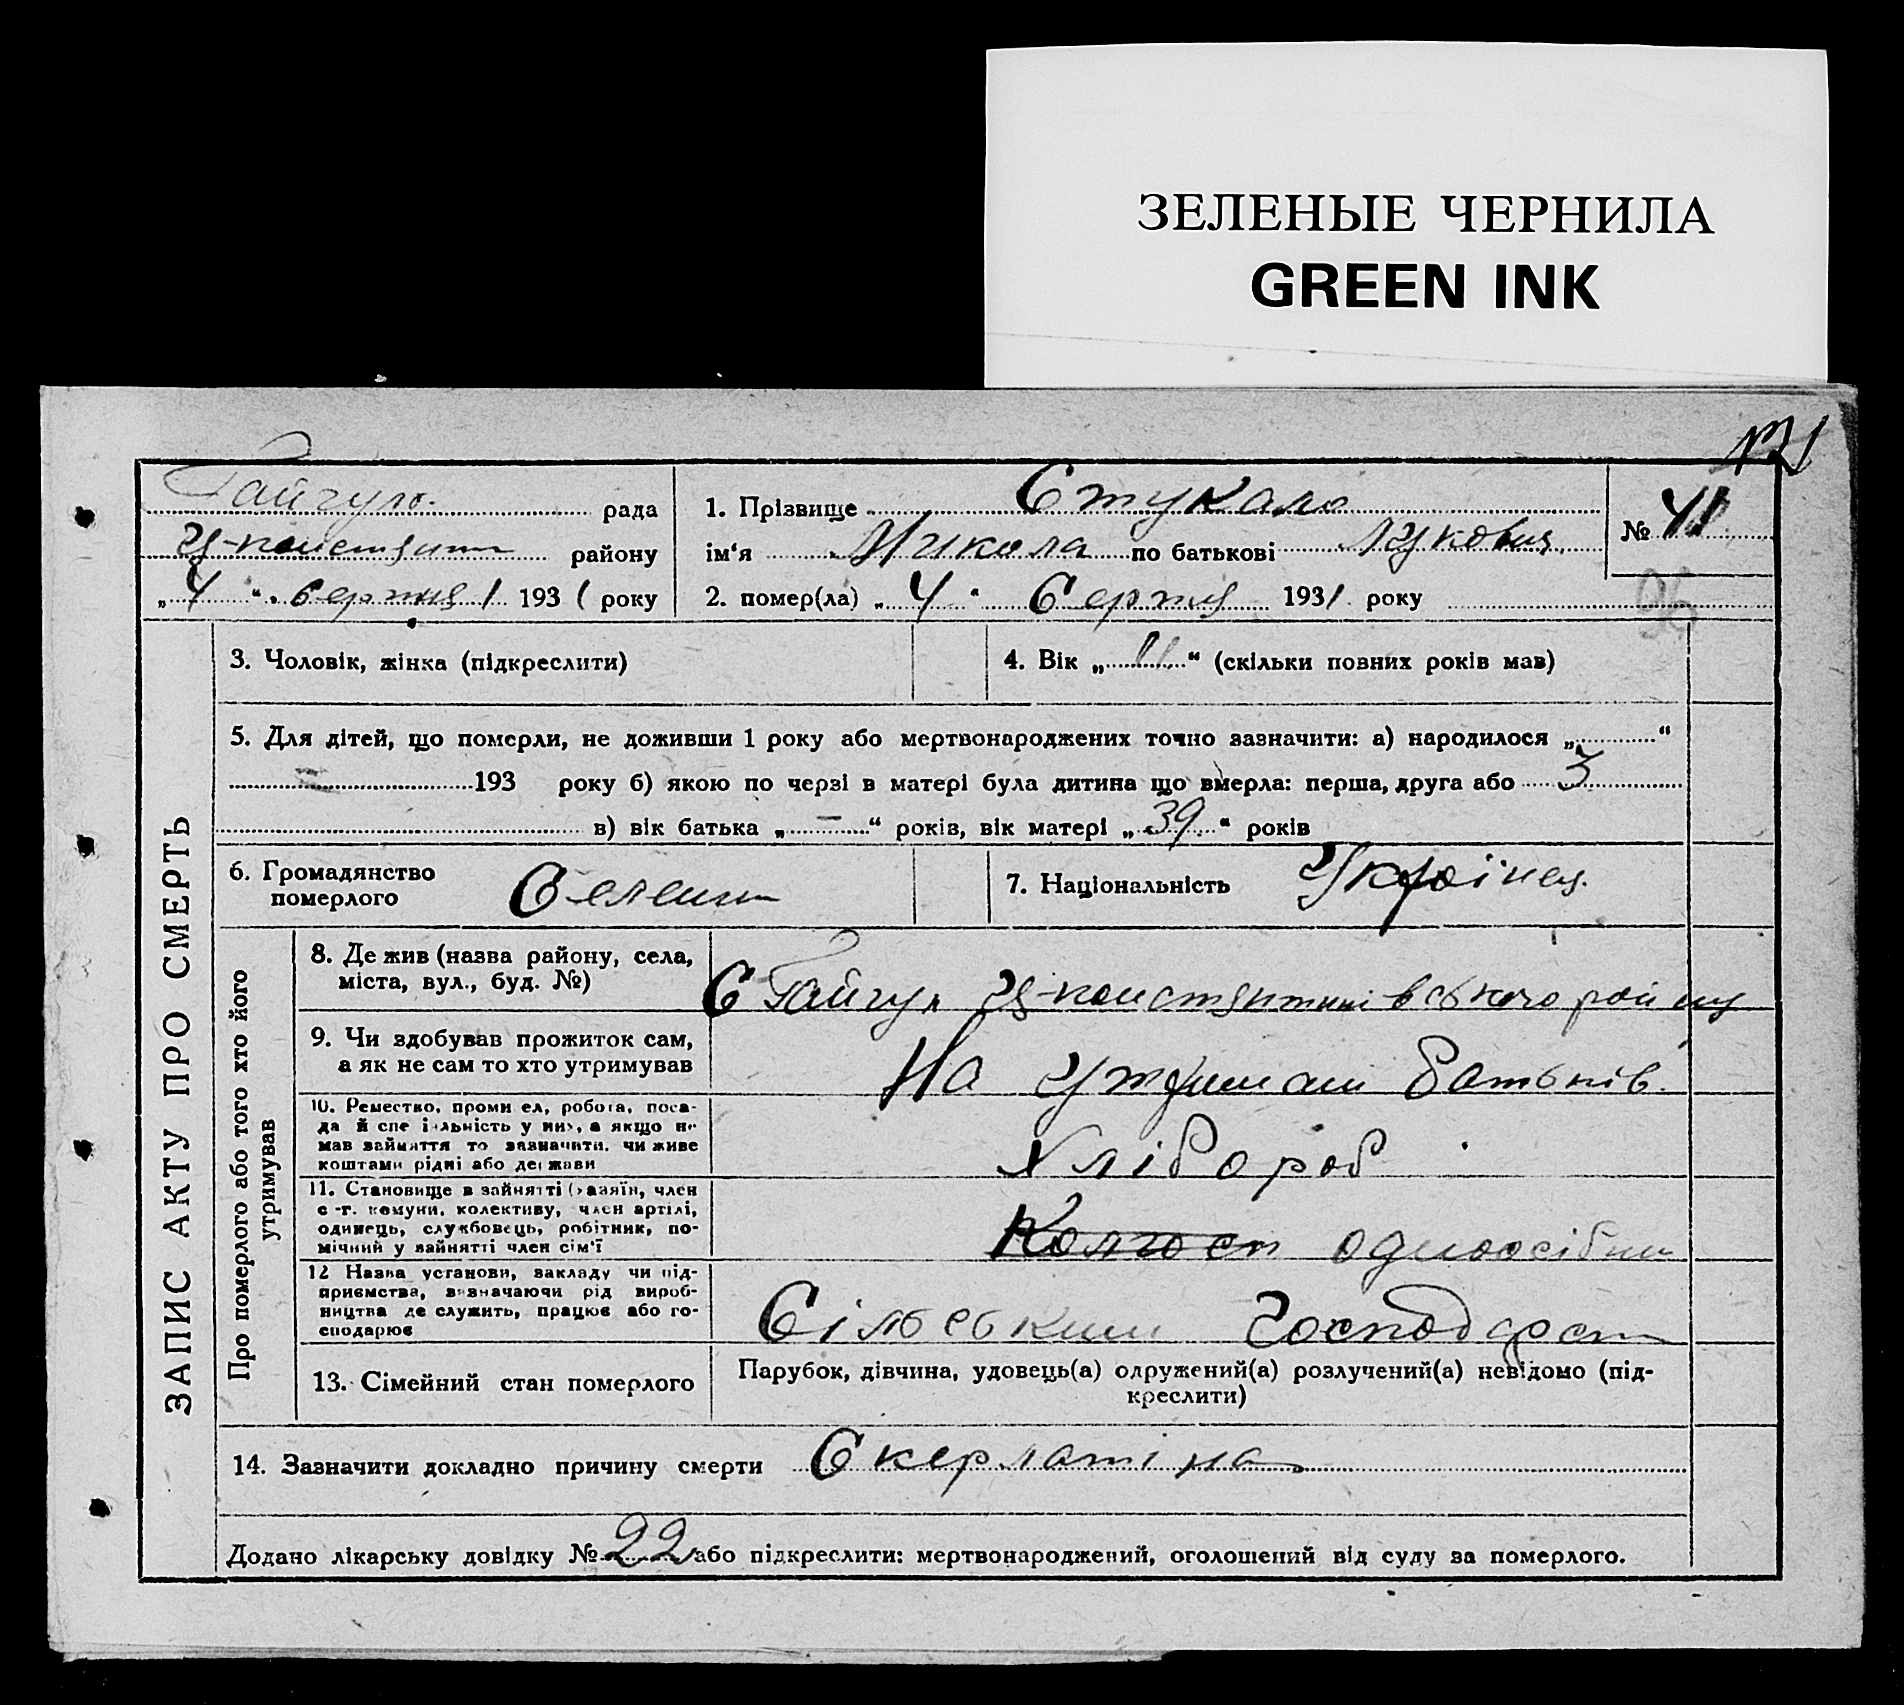 ЗЕЛЕНЫЕ ЧЕРНИЛА
GREEN INK
Гайчул. рада
району
„ 4 “ Серпня 1931 року
1. Прізвище Стукало
ім‘я Микола по батькові Лукович
2. помер(ла) „ 4 “ Серпня 1931 року
№ 41
96
ЗАПИС АКТУ ПРО СМЕРТЬ
3. Чоловік, жінка (підкреслити)
4. Вік „ 11 “ (скільки повних років мав)
5. Для дітей, що померли, не доживши 1 року або мертвонароджених точно зазначити: а) народилося „ “
193 року б) якою по черзі в матері була дитина що вмерла: перша, друга або 3
в) вік батька „ – “ років, вік матері „ 39 “ років
6. Громадянство
померлого
Селени
7. Національність Українец.
Про померлого або того хто його
утримував
8. Де жив (назва району, села,
міста, вул., буд. №)
С Гайчул Ц-константинівського району
9. Чи здобував прожиток сам,
а як не сам то хто утримував
На утримані батьків.
10. Ремество, промисел, робота, поса-
да й спеціяльність у ній, а якщо не
мав зайняття то зазначити, чи живе
коштами рідні або держави
Хлібороб
11. Становище в зайнятті (хазяїн, член
с.-г. комуни, колективу, член артілі,
одинець, службовець, робітник, по-
мічний у зайнятті член сім'ї
Колгосп одноосібни
12 Назва установи, закладу чи під-
приємства, визначаючи рід вироб-
ництва де служить, працює або го-
сподарює
Сільським Господарст
13. Сімейний стан померлого
Парубок, дівчина, удовець(а) одружений(а) розлучений(а) невідомо (під-
креслити)
14. Зазначити докладно причину смерти Скерлатіна
Додано лікарську довідку № 22 або підкреслити: мертвонароджений, оголошений від суду за померлого.